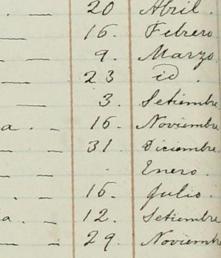 20 Abril.
16. Febrero
9. Marzo
23 id
3. Setiembre
a. 16. Noviembre
31 Diciembre
Enero.
16. Julio.
a. 12. Setiembre
29. Noviembre